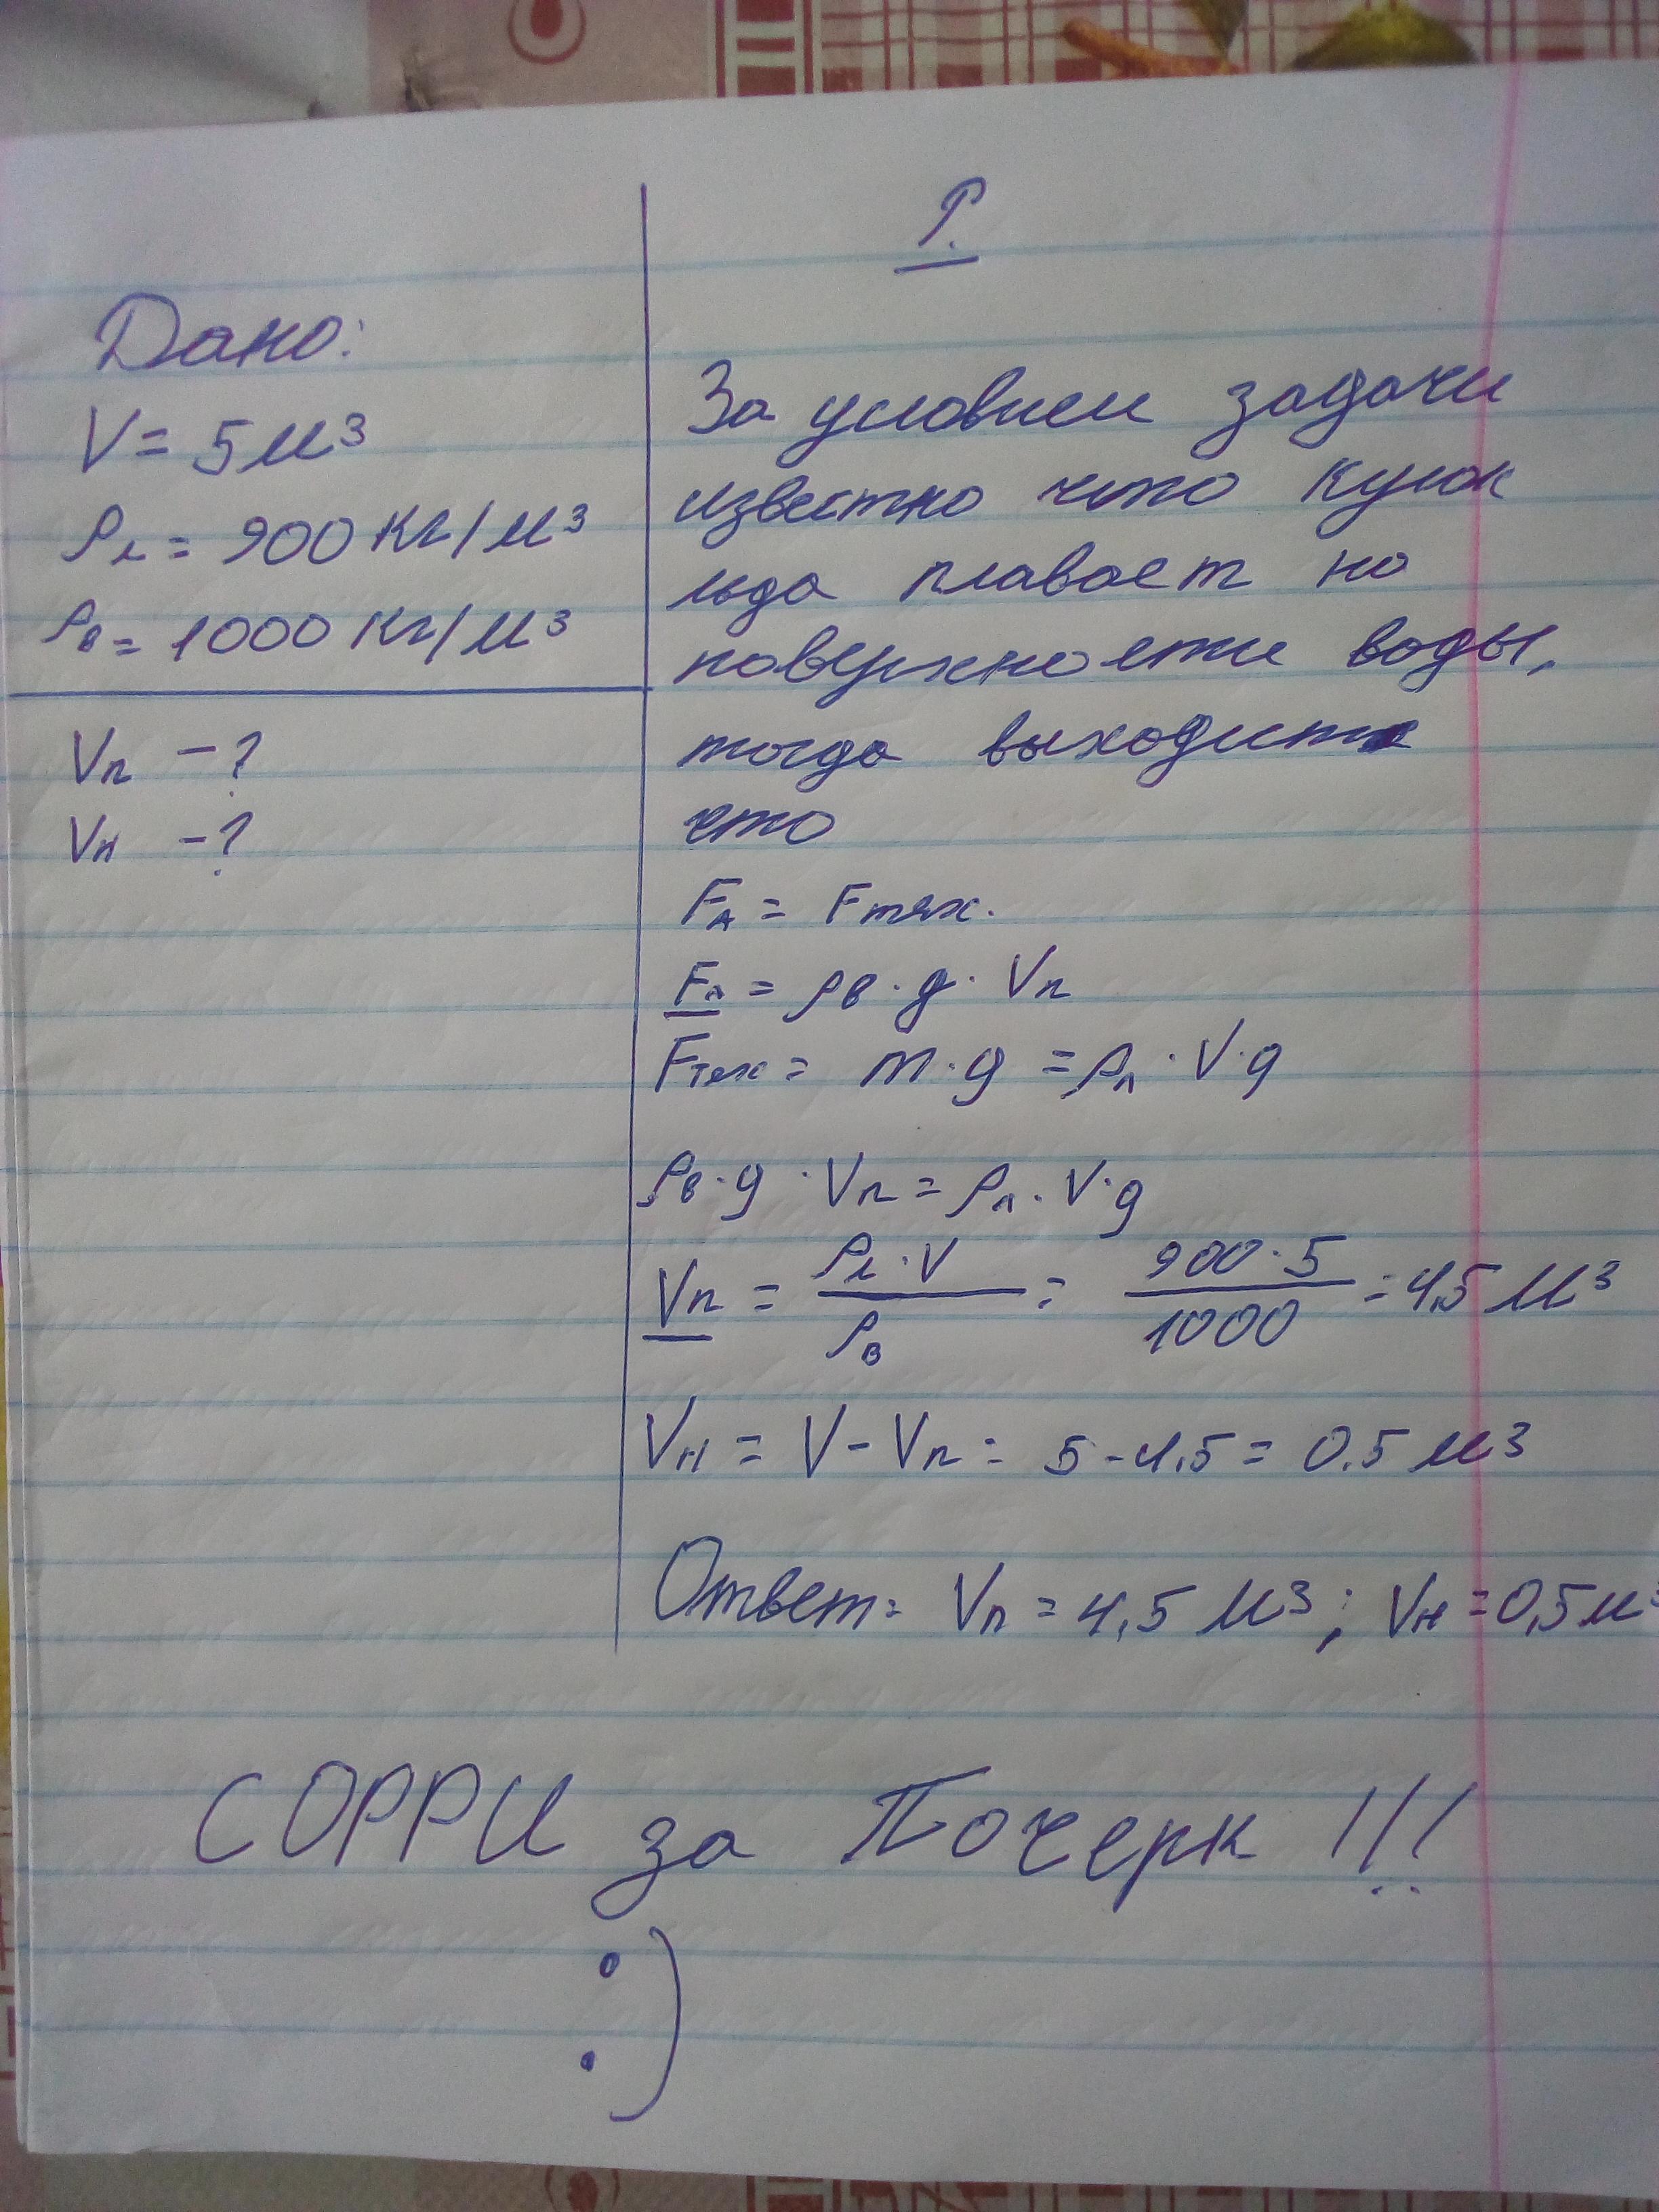 Дано:
V = 5 м³
ρл = 900 кг/м³
ρв = 1000 кг/м³
Vп - ?
Vн - ?
Р.
За условием задачи
известно что кусок
льда плавает на
поверхности воды,
тогда выходит
что
FА = Fтяж.
FА = ρв · g · Vп
Fтяж = m · g = ρл · V · g
ρв · g · Vп = ρл · V · g
Vп = ρл · V / ρв = 900 · 5 / 1000 = 4,5 м³
Vн = V - Vп = 5 - 4,5 = 0.5 м³
Ответ: Vп = 4,5 м³; Vн = 0,5 м³
СОРРИ за Почерк !!!
:)